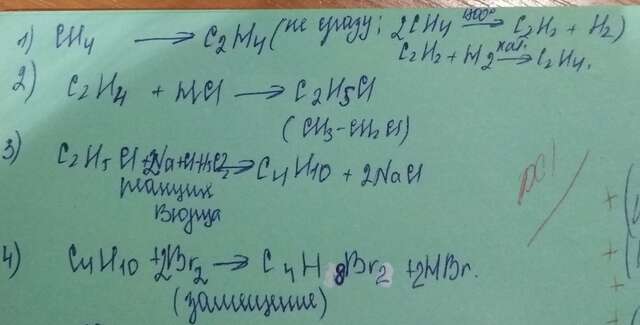 1) CH4 → C2H4 (не сразу; 2CH4 1500° → C2H2 + H2)
C2H2 + H2 кат. → C2H4.
2) C2H4 + HCl → C2H5Cl
(CH3-CH2Cl)
3) C2H5Cl + 2Na + ClH5C2 → C4H10 + 2NaCl
реакция
Вюрца
4) C4H10 + 2Br2 → C4H8Br2 + 2HBr.
(замещение)